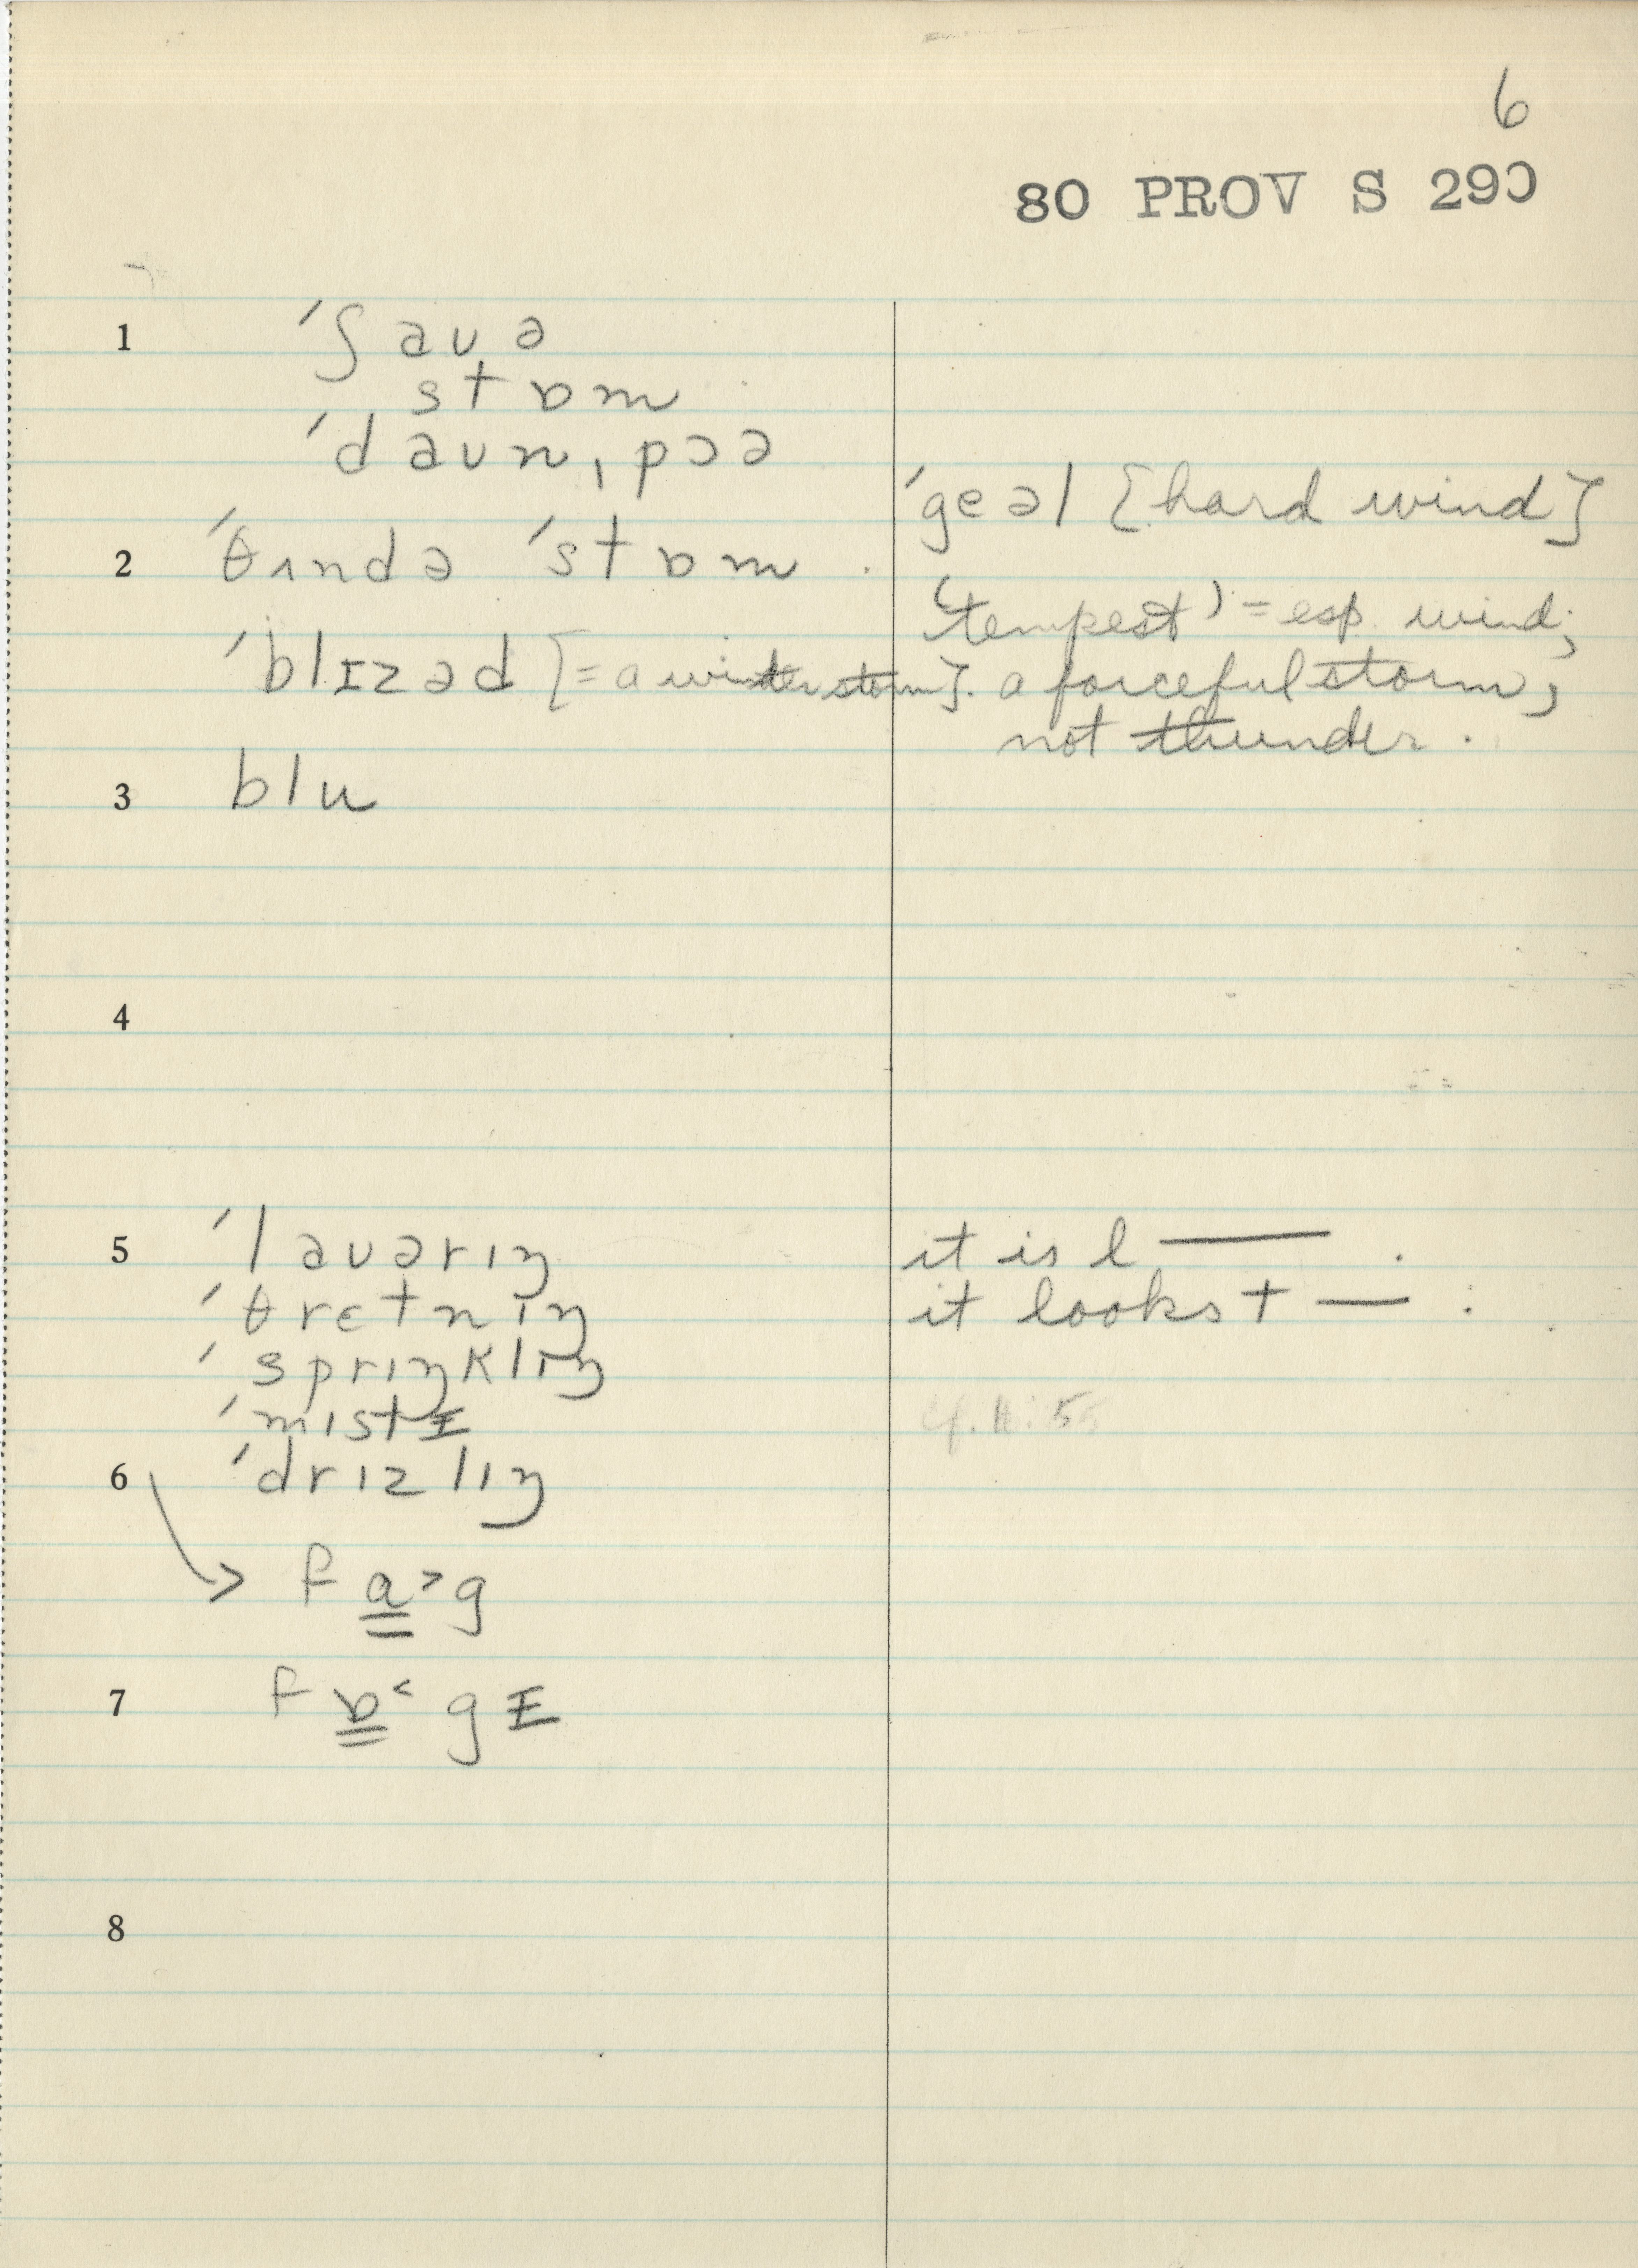 6
80 PROV S 290
1 ˈʃaʊə
stɒm
ˈdaʊnˌpɔə
ˈgeəl [hard wind]
2 ˈθʌndə ˈstɒm .
(tempest) = esp. wind;
ˈblɪzəd [= a winter storm]. a forceful storm;
not thunder .
3 blu
4
5 ˈlaʊərɪŋ it is l — .
ˈθrɛtnɪŋ it looks t — :
ˈsprɪŋklɪŋ
ˈmɪstɪ cf. 11:5
6 ˈdrɪzlɪŋ
→ fɑ˃g
7 fɒ˂gɪ
8